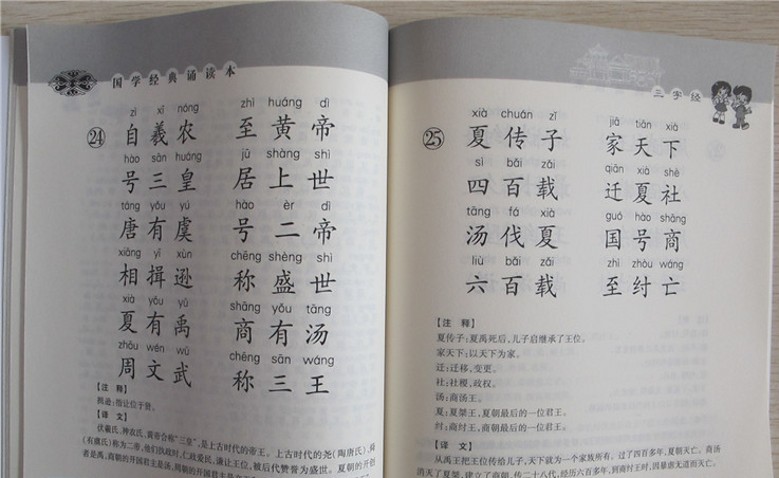 国学经典诵读本
zì xī nóng zhì huáng dì
24 自羲农 至黄帝
hào sān huáng jū shàng shì
号三皇 居上世
táng yǒu yú hào èr dì
唐有虞 号二帝
xiāng yī xùn chēng shèng shì
相揖逊 称盛世
xià yǒu yǔ shāng yǒu tāng
夏有禹 商有汤
zhōu wén wǔ chēng sān wáng
周文武 称三王
【注 释】
揖逊:指让位于贤。
【译 文】
伏羲氏、神农氏、黄帝合称“三皇”,是上古时代的帝王。上古时代的尧(陶唐氏)、舜
(有虞氏)称为二帝,他们执政时,仁政爱民,谦让王位,被后代赞誉为盛世。夏朝的开创
者是禹,商朝的开国君主是汤,周朝的开国君主是
三字经
xià chuán zǐ jiā tiān xià
25 夏传子 家天下
sì bǎi zǎi qiān xià shè
四百载 迁夏社
tāng fá xià guó hào shāng
汤伐夏 国号商
liù bǎi zǎi zhì zhòu wáng
六百载 至纣亡
【注 释】
夏传子:夏禹死后,儿子启继承了王位。
家天下:以天下为家。
迁:迁移,变更。
社:社稷,政权。
汤:商汤王。
夏:夏桀王,夏朝最后的一位君王。
纣:商纣王,商朝最后的一位君王。
【译 文】
从禹王把王位传给儿子,天下就为一个家族所有。过了四百多年,夏朝灭亡。商汤
消灭了夏桀,建立了商朝,传二十八代,经历六百多年,到商纣王时,因暴虐无道而灭亡。